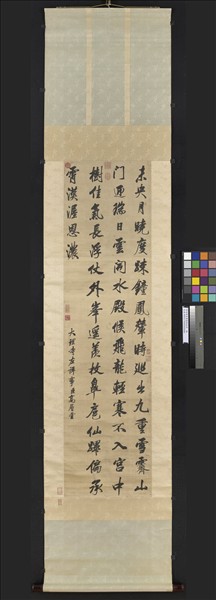 未央月曉度踈鐘鳳輦時巡出九重雪霽山
门迎瑞日雲開水殿候飛龍輕寒不入宮中
樹佳氣長浮仗外峯遥羨枚皋扈仙蹕偏承
霄漢渥恩濃
大理寺左評事臣高層雲